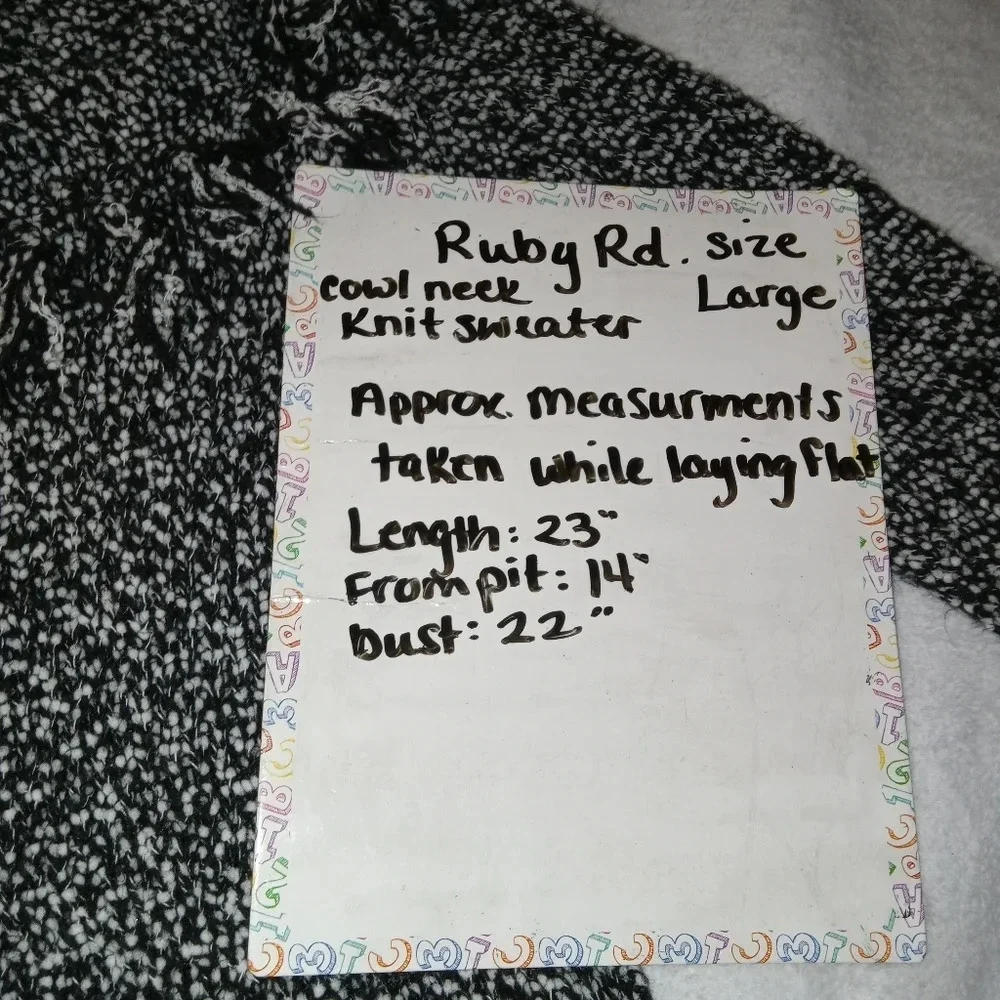 Ruby Rd. size
cowl neck Large
Knit sweater
Approx. measurments
taken while laying flat
Length: 23"
From pit: 14"
bust: 22"